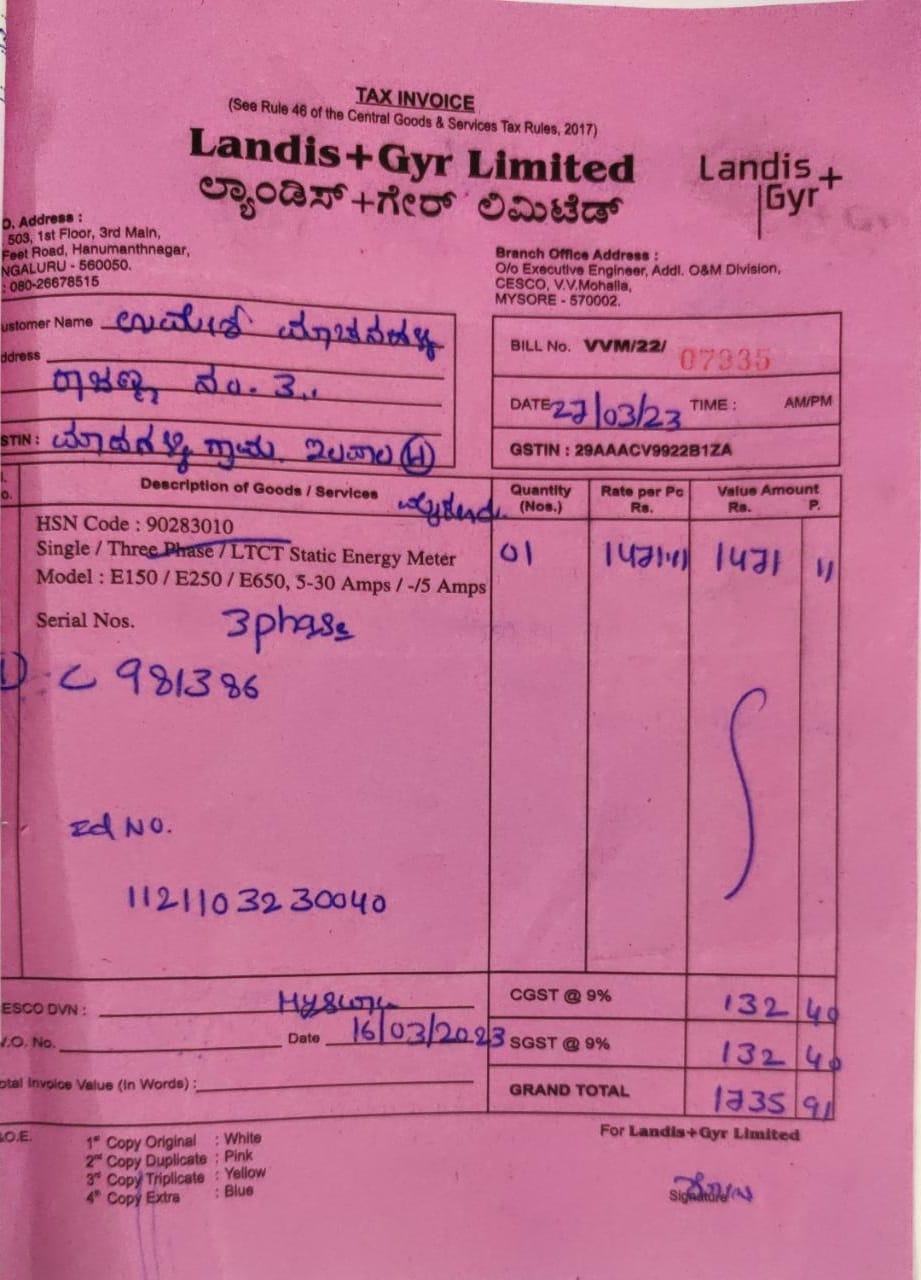 TAX INVOICE
(See Rule 46 of the Central Goods & Services Tax Rules, 2017)
Landis+Gyr Limited
ಲ್ಯಾಂಡಿಸ್+ಗೇರ್ ಲಿಮಿಟೆಡ್
Landis+
Gyr
O. Address :
503, 1st Floor, 3rd Main,
Feet Road, Hanumanthnagar,
NGALURU - 560050.
: 080-26678515
Branch Office Address :
O/o Executive Engineer, Addl. O&M Division,
CESCO, V.V.Mohalla,
MYSORE - 570002.
ustomer Name ಉಮೇಶ್
ddress
ನಂ. 3,
STIN : ಗ್ರಾಮ ಇಲವಾಲ (H)
BILL No. VVM/22/ 07935
DATE 27/03/23 TIME : AM/PM
GSTIN : 29AAACV9922B1ZA
Description of Goods / Services Quantity (Nos.) Rate per Pc Rs. Value Amount Rs. P.
HSN Code : 90283010
Single / Three Phase / LTCT Static Energy Meter 01 1471.11 1471 11
Model : E150 / E250 / E650, 5-30 Amps / -/5 Amps
Serial Nos. 3 phase
1) C 981386
Id NO.
1121103230040
ESCO DVN : Mysore
CGST @ 9% 132 40
V.O. No. Date 16/03/2023
SGST @ 9% 132 40
otal Invoice Value (In Words) :
GRAND TOTAL 1735 91
.O.E.
1st Copy Original : White
2nd Copy Duplicate : Pink
3rd Copy Triplicate : Yellow
4th Copy Extra : Blue
For Landis+Gyr Limited
Signature